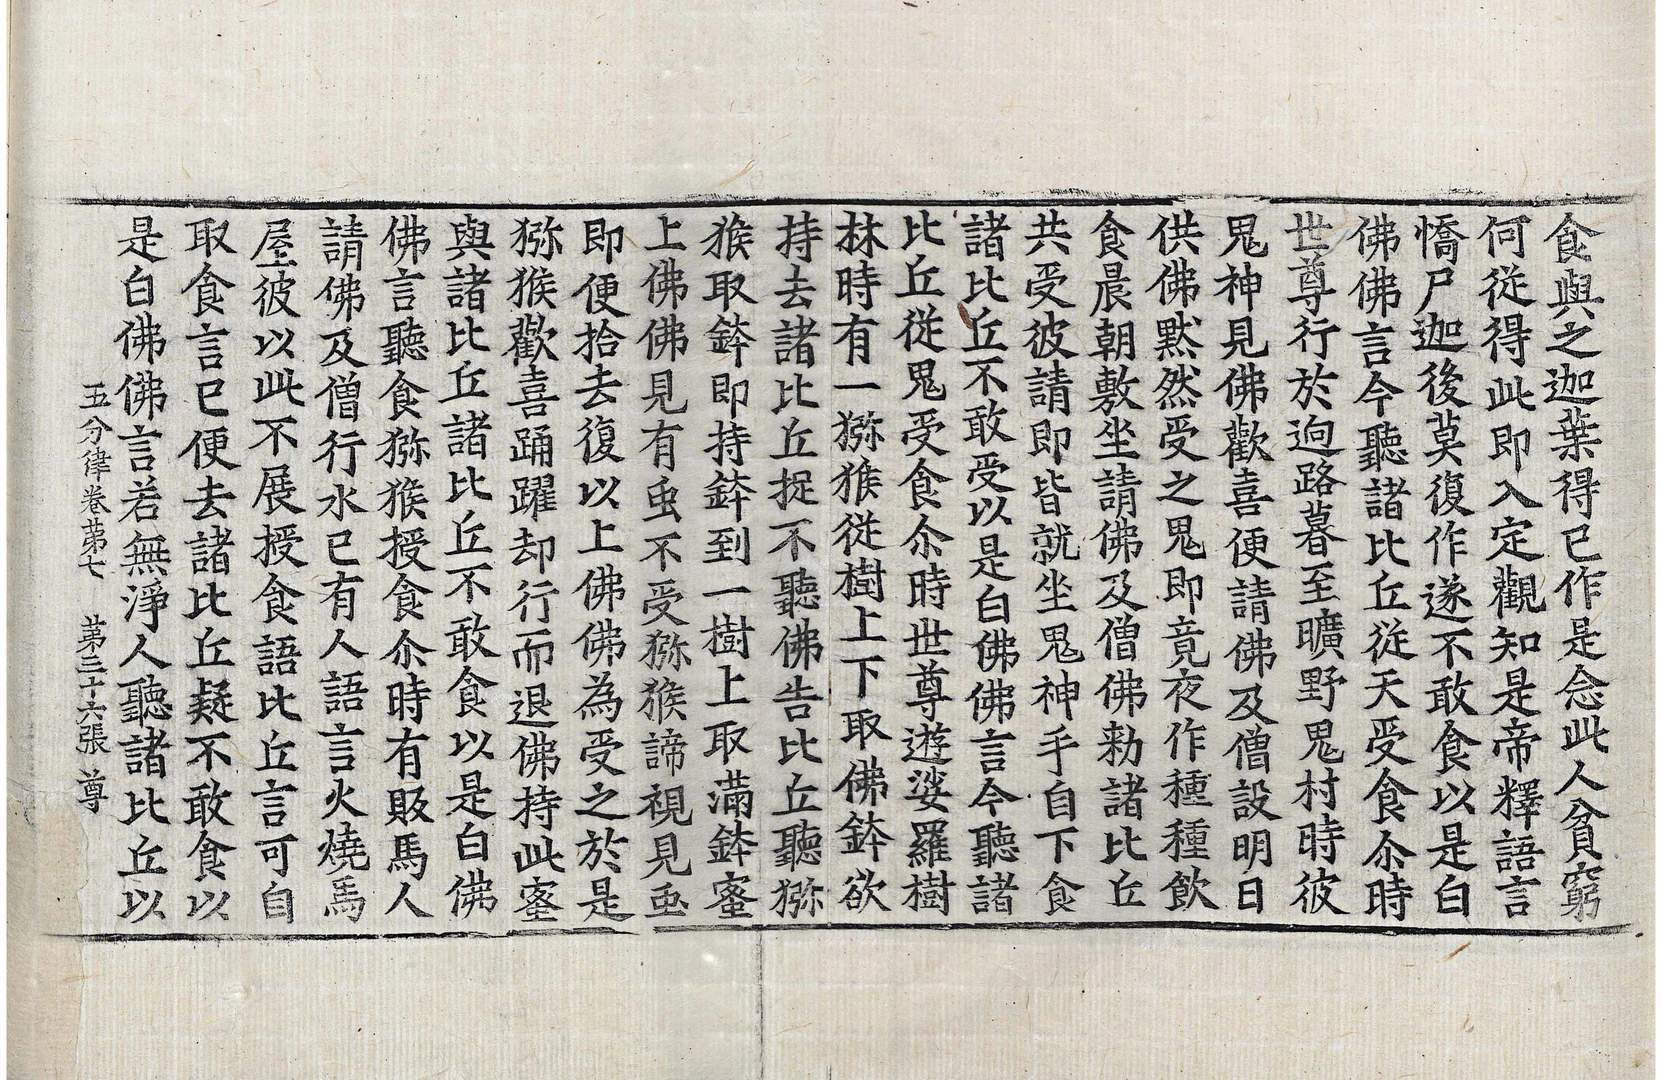 食與之迦葉得已作是念此人貧窮
何從得此即入定觀知是帝釋語言
憍尸迦後莫復作遂不敢食以是白
佛佛言今聽諸比丘從天受食尒時
世尊行於迥路暮至曠野鬼村時彼
鬼神見佛歡喜便請佛及僧設明日
供佛默然受之鬼即竟夜作種種飲
食晨朝敷坐請佛及僧佛勑諸比丘
共受彼請即皆就坐鬼神手自下食
諸比丘不敢受以是白佛佛言今聽諸
比丘從鬼受食尒時世尊遊娑羅樹
林時有一猕猴從樹上下取佛鉢欲
持去諸比丘捉不聽佛告比丘聽猕
猴取鉢即持鉢到一樹上取滿鉢蜜
上佛佛見有虫不受猕猴諦視見虫
即便拾去復以上佛佛為受之於是
猕猴歡喜踊躍却行而退佛持此蜜
與諸比丘諸比丘不敢食以是白佛
佛言聽食猕猴授食尒時有販馬人
請佛及僧行水已有人語言火燒馬
屋彼以此不展授食語比丘言可自
取食言已便去諸比丘疑不敢食以
是白佛佛言若無淨人聽諸比丘以
五分律卷苐七 苐三十六張 尊